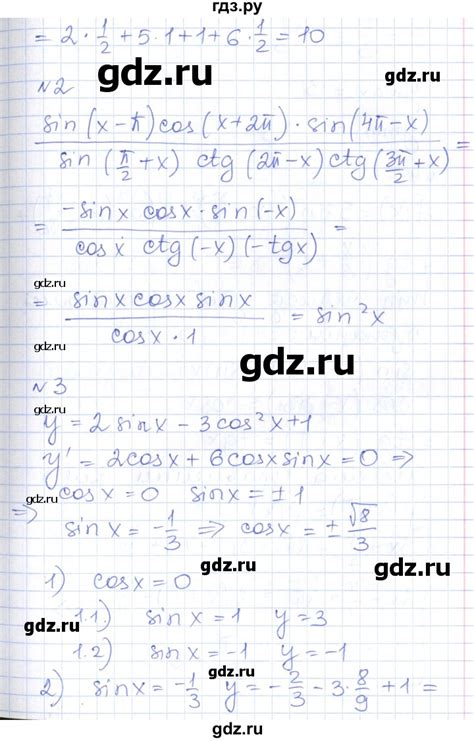 гдз.ру
= 2 · 1/2 + 5 · 1 + 1 + 6 · 1/2 = 10
gdz.ru
gdz.ru
№2
sin (x − π) cos (x + 2π) · sin (4π − x)
/ sin (π/2 + x) ctg (2π − x) ctg (3π/2 + x) =
= −sin x cos x · sin (−x)
/ cos x ctg (−x) (−tg x) =
gdz.ru
gdz.ru
= sin x cos x sin x / cos x · 1 = sin²x
gdz.ru
№3
y = 2 sin x − 3 cos²x + 1
y' = 2cos x + 6cos x sin x = 0 ⇒
gdz.ru
gdz.ru
⇒ cos x = 0 sin x = ± 1
sin x = −1/3 ⇒ cos x = ± √8/3
gdz.ru
1) cos x = 0
gdz.ru
1.1) sin x = 1 y = 3
gdz.ru
1.2) sin x = −1 y = −1
gdz.ru
2) sin x = −1/3 y = −2/3 − 3 · 8/9 + 1 =
gdz.ru